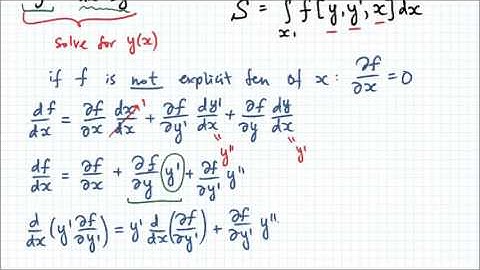 S = ∫ f[y, y', x] dx
x₁
solve for y(x)
if f is not explicit fcn of x: ∂f/∂x = 0
df/dx = ∂f/∂x dx/dx 1 + ∂f/∂y' dy'/dx + ∂f/∂y dy/dx
" y'' " y'
df/dx = ∂f/∂x + ∂f/∂y y' + ∂f/∂y' y''
d/dx (y' ∂f/∂y') = y' d/dx (∂f/∂y') + ∂f/∂y' y''